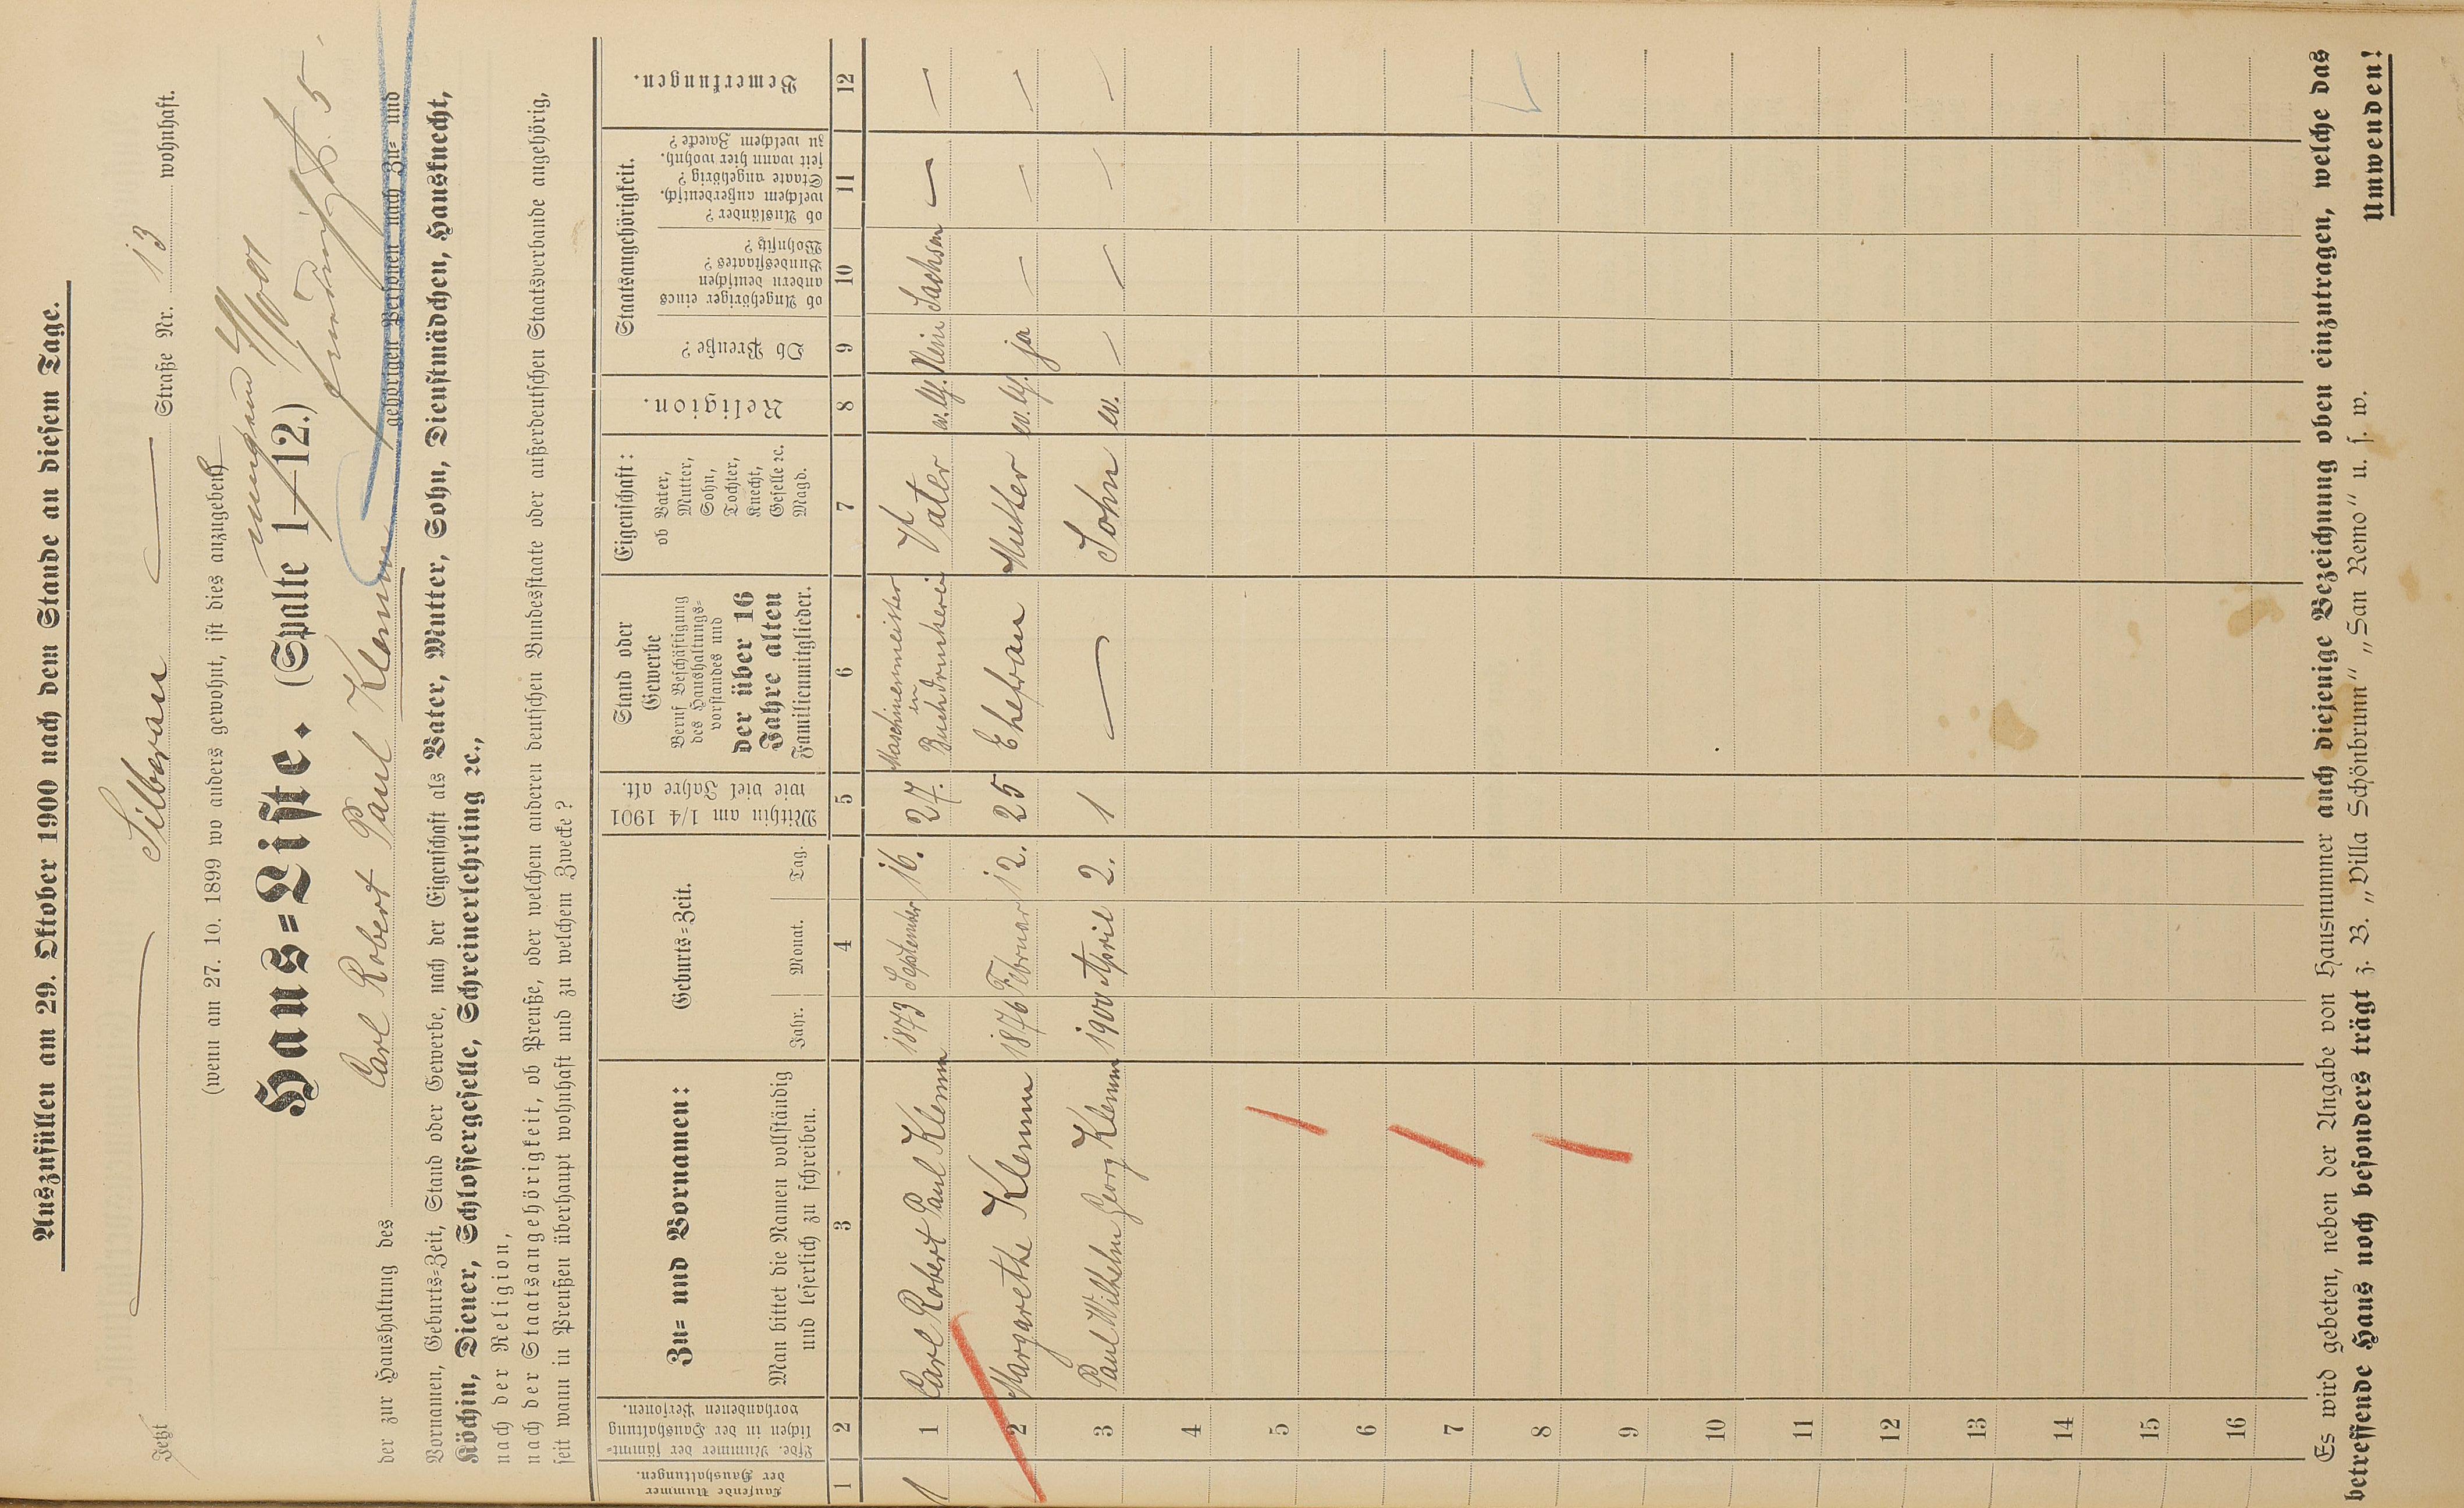 Auszufüllen am 29. Oktober 1900 nach dem Stande an diesem Tage.
Jetzt Silberau Straße Nr. 13 wohnhaft.
(wenn am 27. 10. 1899 wo anders gewohnt, ist dies anzugeben)
Haus=Liste. (Spalte 1—12.)
der zur Haushaltung des Carl Robert Paul Klemm gehörigen Personen nach Zu= und
Vornamen, Geburts=Zeit, Stand oder Gewerbe, nach der Eigenschaft als Vater, Mutter, Sohn, Dienstmädchen, Hausknecht,
Köchin, Diener, Schlossergeselle, Schreinerlehrling ec.,
nach der Religion,
nach der Staatsangehörigkeit, ob Preuße, oder welchem anderen deutschen Bundesstaate oder außerdeutschen Staatsverbande angehörig,
seit wann in Preußen überhaupt wohnhaft und zu welchem Zwecke?
Laufende Nummer
der Haushaltungen.
Lfde. Nummer der sämmt=
lichen in der Haushaltung
vorhandenen Personen.
Zu= und Vornamen:
Man bittet die Namen vollständig
und leserlich zu schreiben.
Geburts=Zeit.
Jahr. Monat. Tag.
Mithin am 1/4 1901
wie viel Jahre alt.
Stand oder
Gewerbe
Beruf Beschäftigung
des Haushaltungs=
vorstandes und
der über 16
Jahre alten
Familienmitglieder.
Eigenschaft:
ob Vater,
Mutter,
Sohn,
Tochter,
Knecht,
Geselle ec.
Magd.
Religion.
Staatsangehörigkeit.
Ob Preuße?
ob Angehöriger eines
andern deutschen
Bundesstaates?
Wohnsitz?
ob Ausländer?
welchem außerdeutsch.
Staate angehörig?
seit wann hier wohnh.
zu welchem Zwecke?
Bemerkungen.
1 2 3 4 5 6 7 8 9 10 11 12
1 1 Carl Robert Paul Klemm 1873 September 16. 27. Maschinenmeister in Buchdruckerei Vater Nein Sachsen — —
2 Margarethe Klemm 1876 Februar 12. 25 Ehefrau Mutter ja — —  —
3 Paul Wilhelm Georg Klemm 1900 April 2. 1 — Sohn ev. — — — —
4
5
6
7
8
9
10
11
12
13
14
15
16
Es wird gebeten, neben der Angabe von Hausnummer auch diejenige Bezeichnung oben einzutragen, welche das
betreffende Haus noch besonders trägt z. B. „Villa Schönbrunn" „San Remo" u. s. w.
Umwenden!